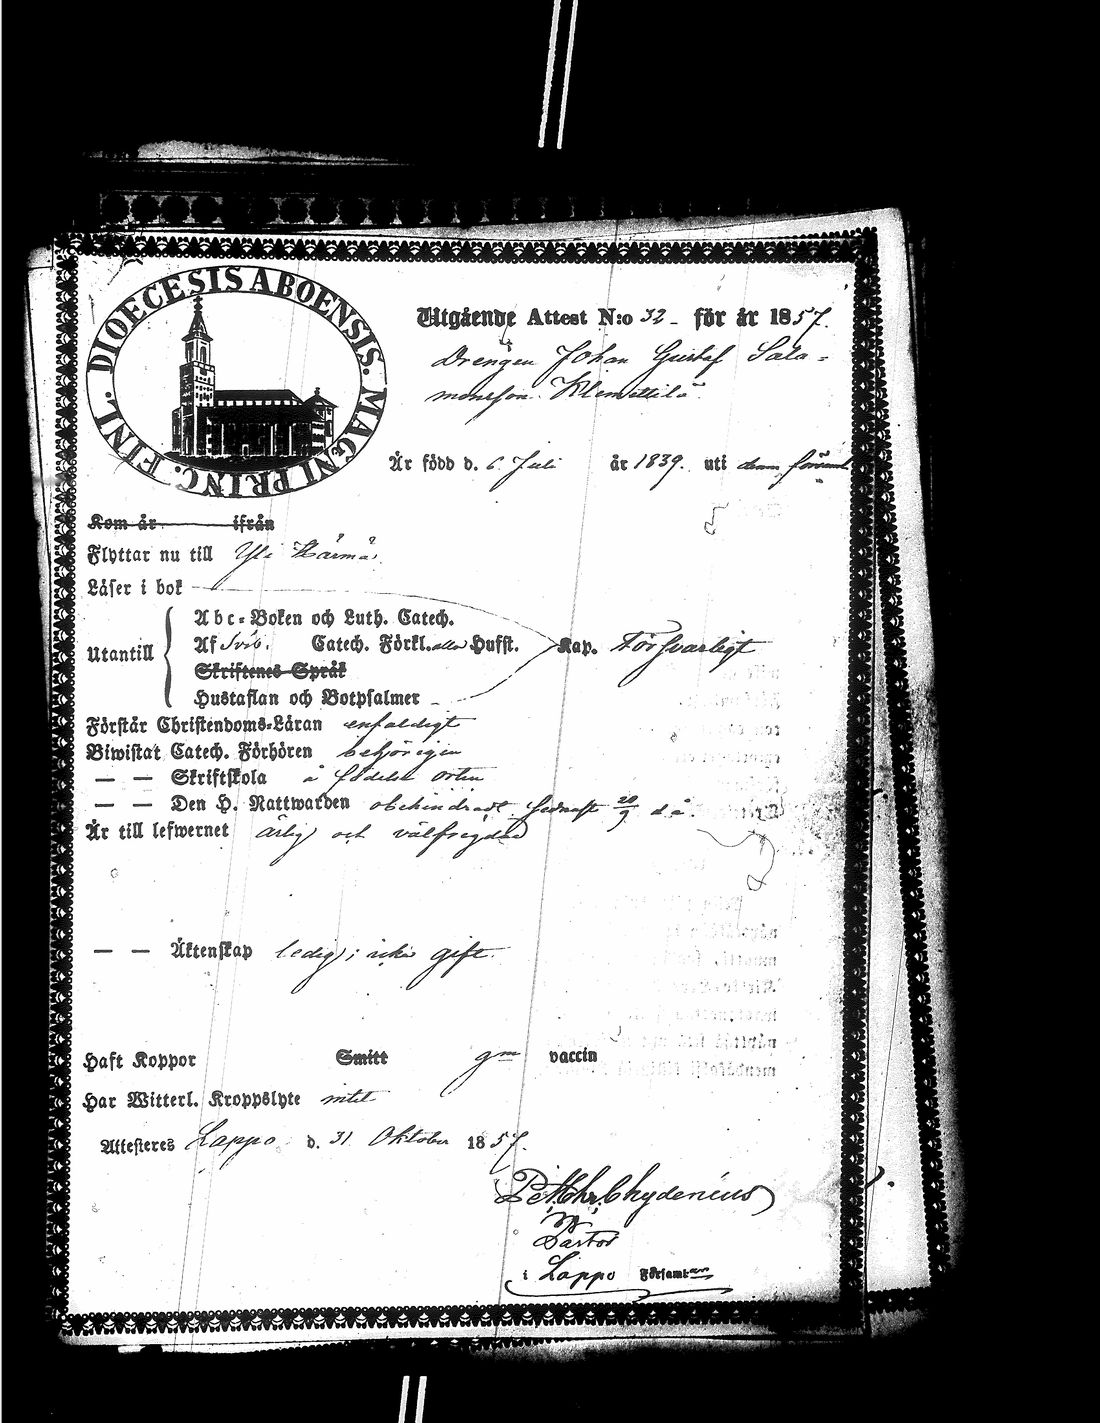 DIOECESIS ABOENSIS. MAGNI PRINC. FINL.
Utgående Attest N:o 32 - för år 1857.
Drengen Johan Gustaf Sala=
monsson Klemettilä
Är född d. 6 Juli år 1839. uti denna församl.
Kom år ifrån
Flyttar nu till Yli Härmä.
Läser i bok
Abc-Boken och Luth. Catech.
Utantill Af Svib. Catech. Förkl. Hufst. Kap. Försvarligt
Skriftenes Språk
Hustaflan och Botpsalmer
Förstår Christendoms-Läran enfaldigt
Biwistat Catech. Förhören behörigen
— — Skriftskola å födelse orten
— — Den H. Nattwarden obehindradt sednast 20/9 d.å.
Är till lefwernet ärlig och välfrejdad
— — Äktenskap ledig; icke gift.
Haft Koppor Smitt gm vaccin
Har Witterl. Kroppslyte intet
Attesteres Lappo d. 31 Oktober 1857.
Chydenius
Pastor
i Lappo Församl.